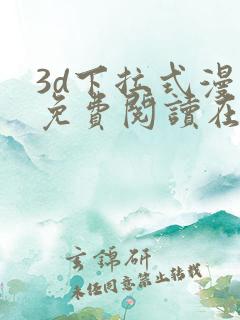 3d下拉式漫
免費閱讀在
玄錦研
未经同意禁止转载